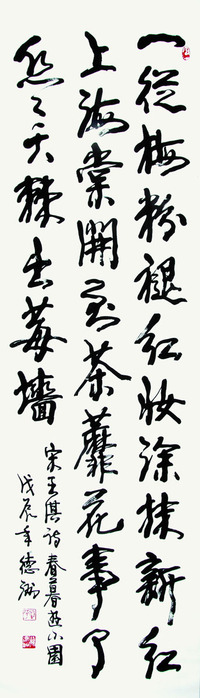 一從梅粉褪红妝涂抹新红
上海棠開到荼蘼花事了
丝々天棘出莓墙
宋王淇詩春暮遊小園
戊辰年德